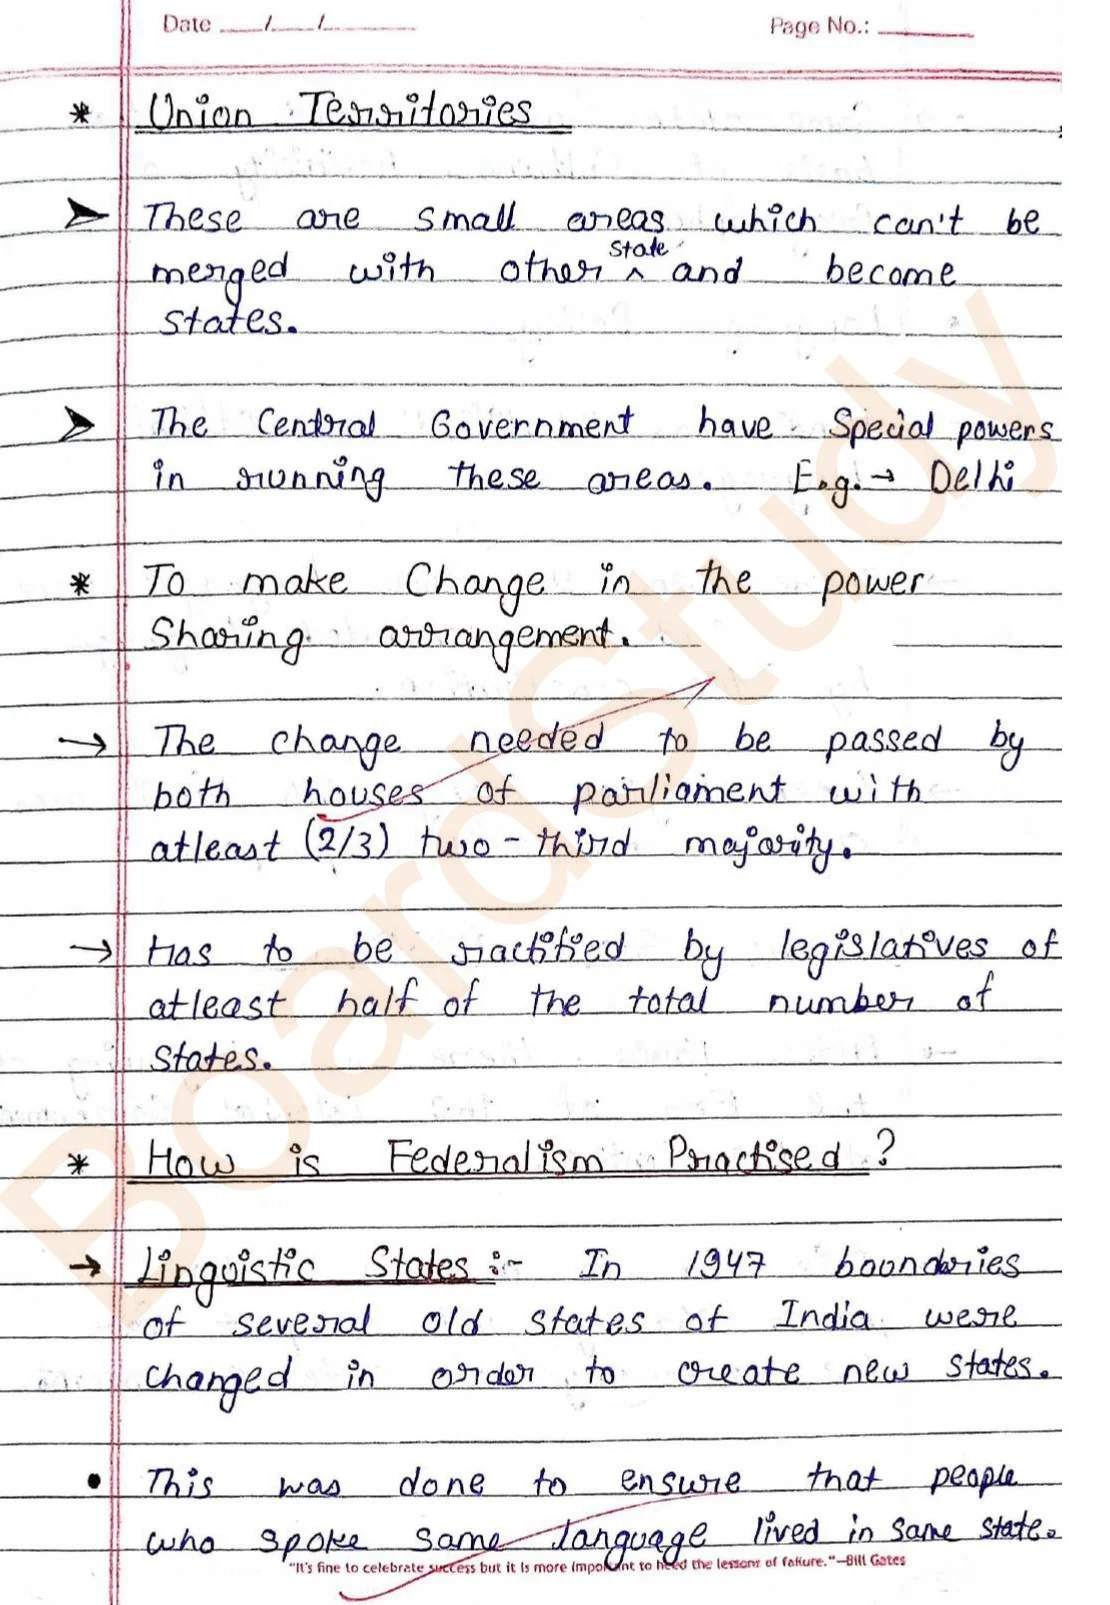 Date ___/___/______ Page No.: ______
* Union Territories
➤ These are small areas which can't be
merged with other ^ state and become
states.
➤ The Central Government have Special powers
in running these areas. E.g. → Delhi
* To make Change in the power
Sharing arrangement.
→ The change needed to be passed by
both houses of parliament with
atleast (2/3) two-third majority.
→ Has to be ractified by legislatives of
atleast half of the total number of
states.
* How is Federalism Practised ?
→ Linguistic States :- In 1947 boundries
of several old states of India were
changed in order to create new states.
• This was done to ensure that people
who spoke same language lived in same state.
"It's fine to celebrate success but it is more important to heed the lessons of failure."—Bill Gates
BoardStudy